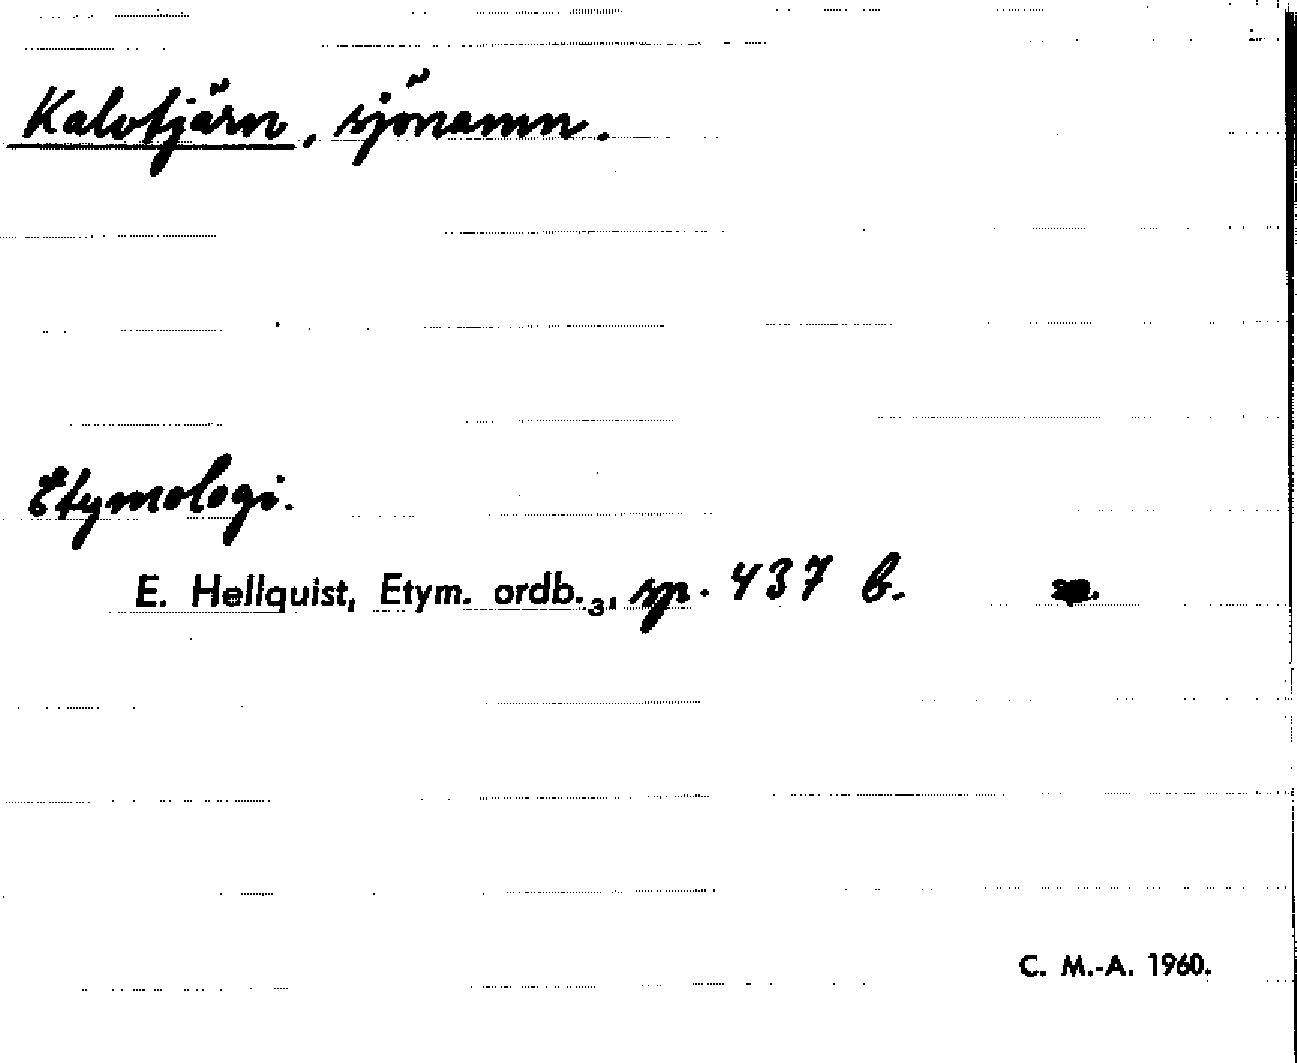 Kalvtjärn, sjönamn.
Etymologi.
E. Hellquist, Etym. ordb.3, sp. 437 b.
C. M.-A. 1960.